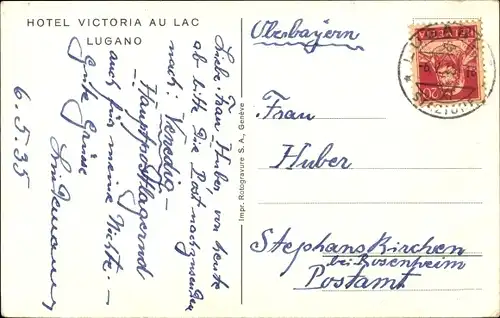 HOTEL VICTORIA AU LAC
LUGANO
Liebe Frau Huber, von heute
ab bitte die Post nachzusenden
nach: Venedig –
Hauptpostlagernd
auch für meine Nichte. –
Gute Grüsse
6.5.35
Impr. Rotogravure S. A., Genève
Oberbayern
Frau
Huber
Stephanskirchen
bei Rosenheim
Postamt
20